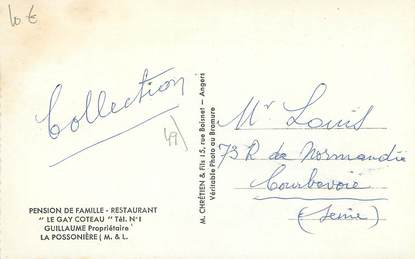 10 €
Collection
49)
PENSION DE FAMILLE - RESTAURANT
" LE GAY COTEAU " Tél. N° 1
GUILLAUME Propriétaire
LA POSSONIÈRE ( M. & L.
M. CHRÉTIEN & Fils 15, rue Boisnet - Angers
Véritable Photo au Bromure
Mr Louis
73 R de Normandie
Courbevoie
(Seine)